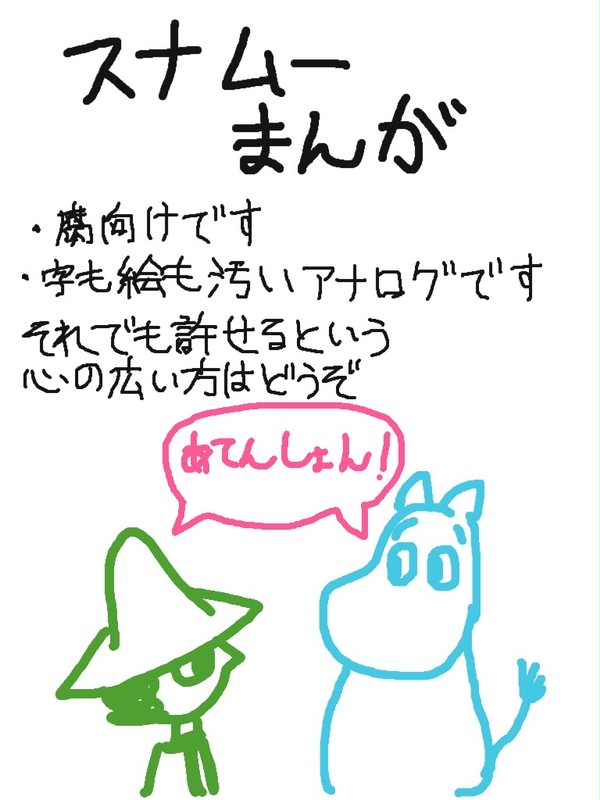 スナムー
まんが
・腐向けです
・字も絵も汚いアナログです
それでも許せるという
心の広い方はどうぞ
あてんしょん!